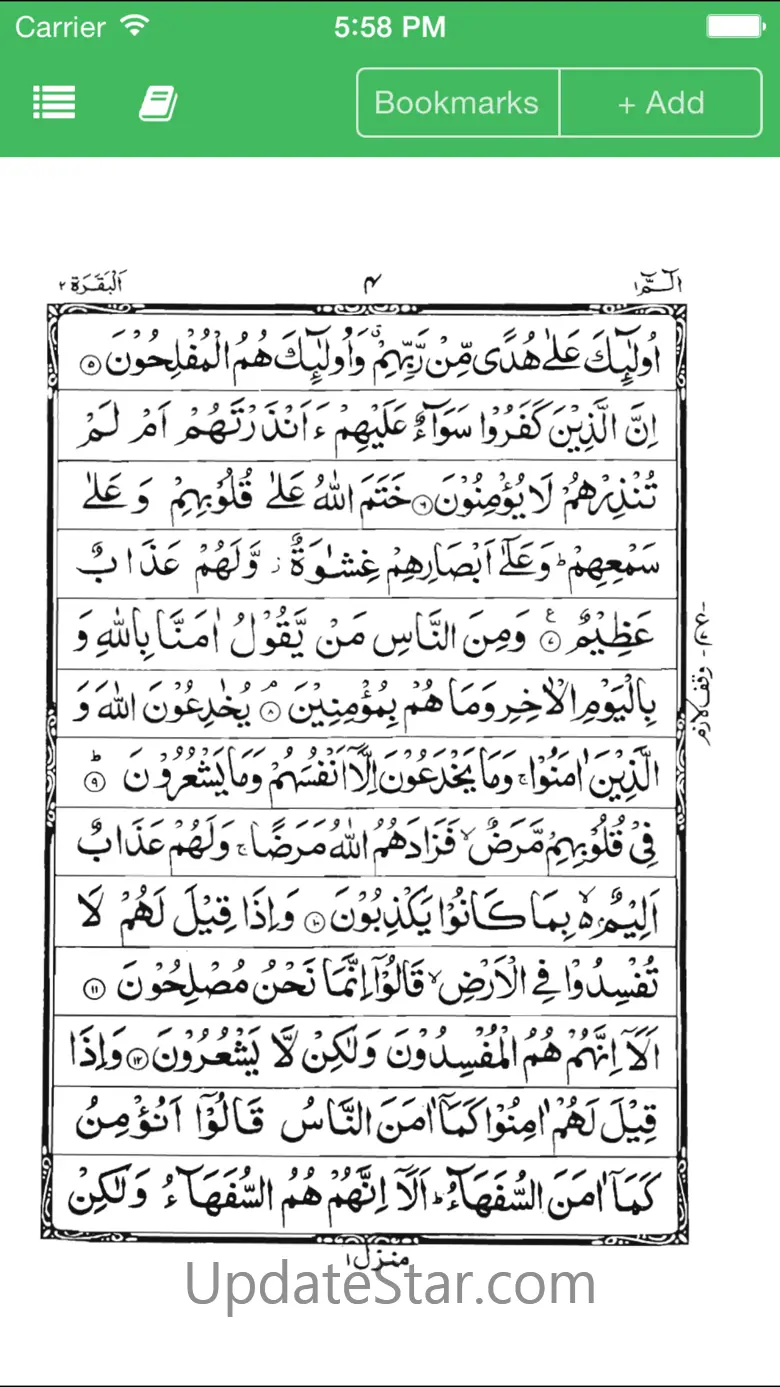 Carrier 5:58 PM
Bookmarks + Add
الٓمّٓ ۱ ۴ اَلْبَقَرَة ۲
اُولٰٓئِكَ عَلٰی هُدًی مِّنْ رَّبِّهِمْ ۗ وَاُولٰٓئِكَ هُمُ الْمُفْلِحُوْنَ ۵
اِنَّ الَّذِيْنَ كَفَرُوْا سَوَآءٌ عَلَيْهِمْ ءَاَنْذَرْتَهُمْ اَمْ لَمْ
تُنْذِرْهُمْ لَا يُؤْمِنُوْنَ ۶ خَتَمَ اللّٰهُ عَلٰی قُلُوْبِهِمْ وَ عَلٰی
سَمْعِهِمْ ؕ وَعَلٰٓی اَبْصَارِهِمْ غِشَاوَةٌ ز وَّلَهُمْ عَذَابٌ
عَظِيْمٌ ۷ ع وَمِنَ النَّاسِ مَنْ يَّقُوْلُ اٰمَنَّا بِاللّٰهِ وَ
بِالْيَوْمِ الْاٰخِرِ وَمَا هُمْ بِمُؤْمِنِيْنَ ۸ ۘ يُخٰدِعُوْنَ اللّٰهَ وَ
الَّذِيْنَ اٰمَنُوْا ۚ وَمَا يَخْدَعُوْنَ اِلَّاۤ اَنْفُسَهُمْ وَمَا يَشْعُرُوْنَ ۹ ؕ
فِیْ قُلُوْبِهِمْ مَّرَضٌ ۙ فَزَادَهُمُ اللّٰهُ مَرَضًا ۚ وَلَهُمْ عَذَابٌ
اَلِيْمٌۢ ۙ بِمَا كَانُوْا يَكْذِبُوْنَ ۱۰ وَاِذَا قِيْلَ لَهُمْ لَا
تُفْسِدُوْا فِی الْاَرْضِ ۙ قَالُوْۤا اِنَّمَا نَحْنُ مُصْلِحُوْنَ ۱۱
اَلَاۤ اِنَّهُمْ هُمُ الْمُفْسِدُوْنَ وَلٰكِنْ لَّا يَشْعُرُوْنَ ۱۲ وَاِذَا
قِيْلَ لَهُمْ اٰمِنُوْا كَمَاۤ اٰمَنَ النَّاسُ قَالُوْۤا اَنُؤْمِنُ
كَمَاۤ اٰمَنَ السُّفَهَآءُ ؕ اَلَاۤ اِنَّهُمْ هُمُ السُّفَهَآءُ وَلٰكِنْ
وقف لازم
منزل ۱
UpdateStar.com